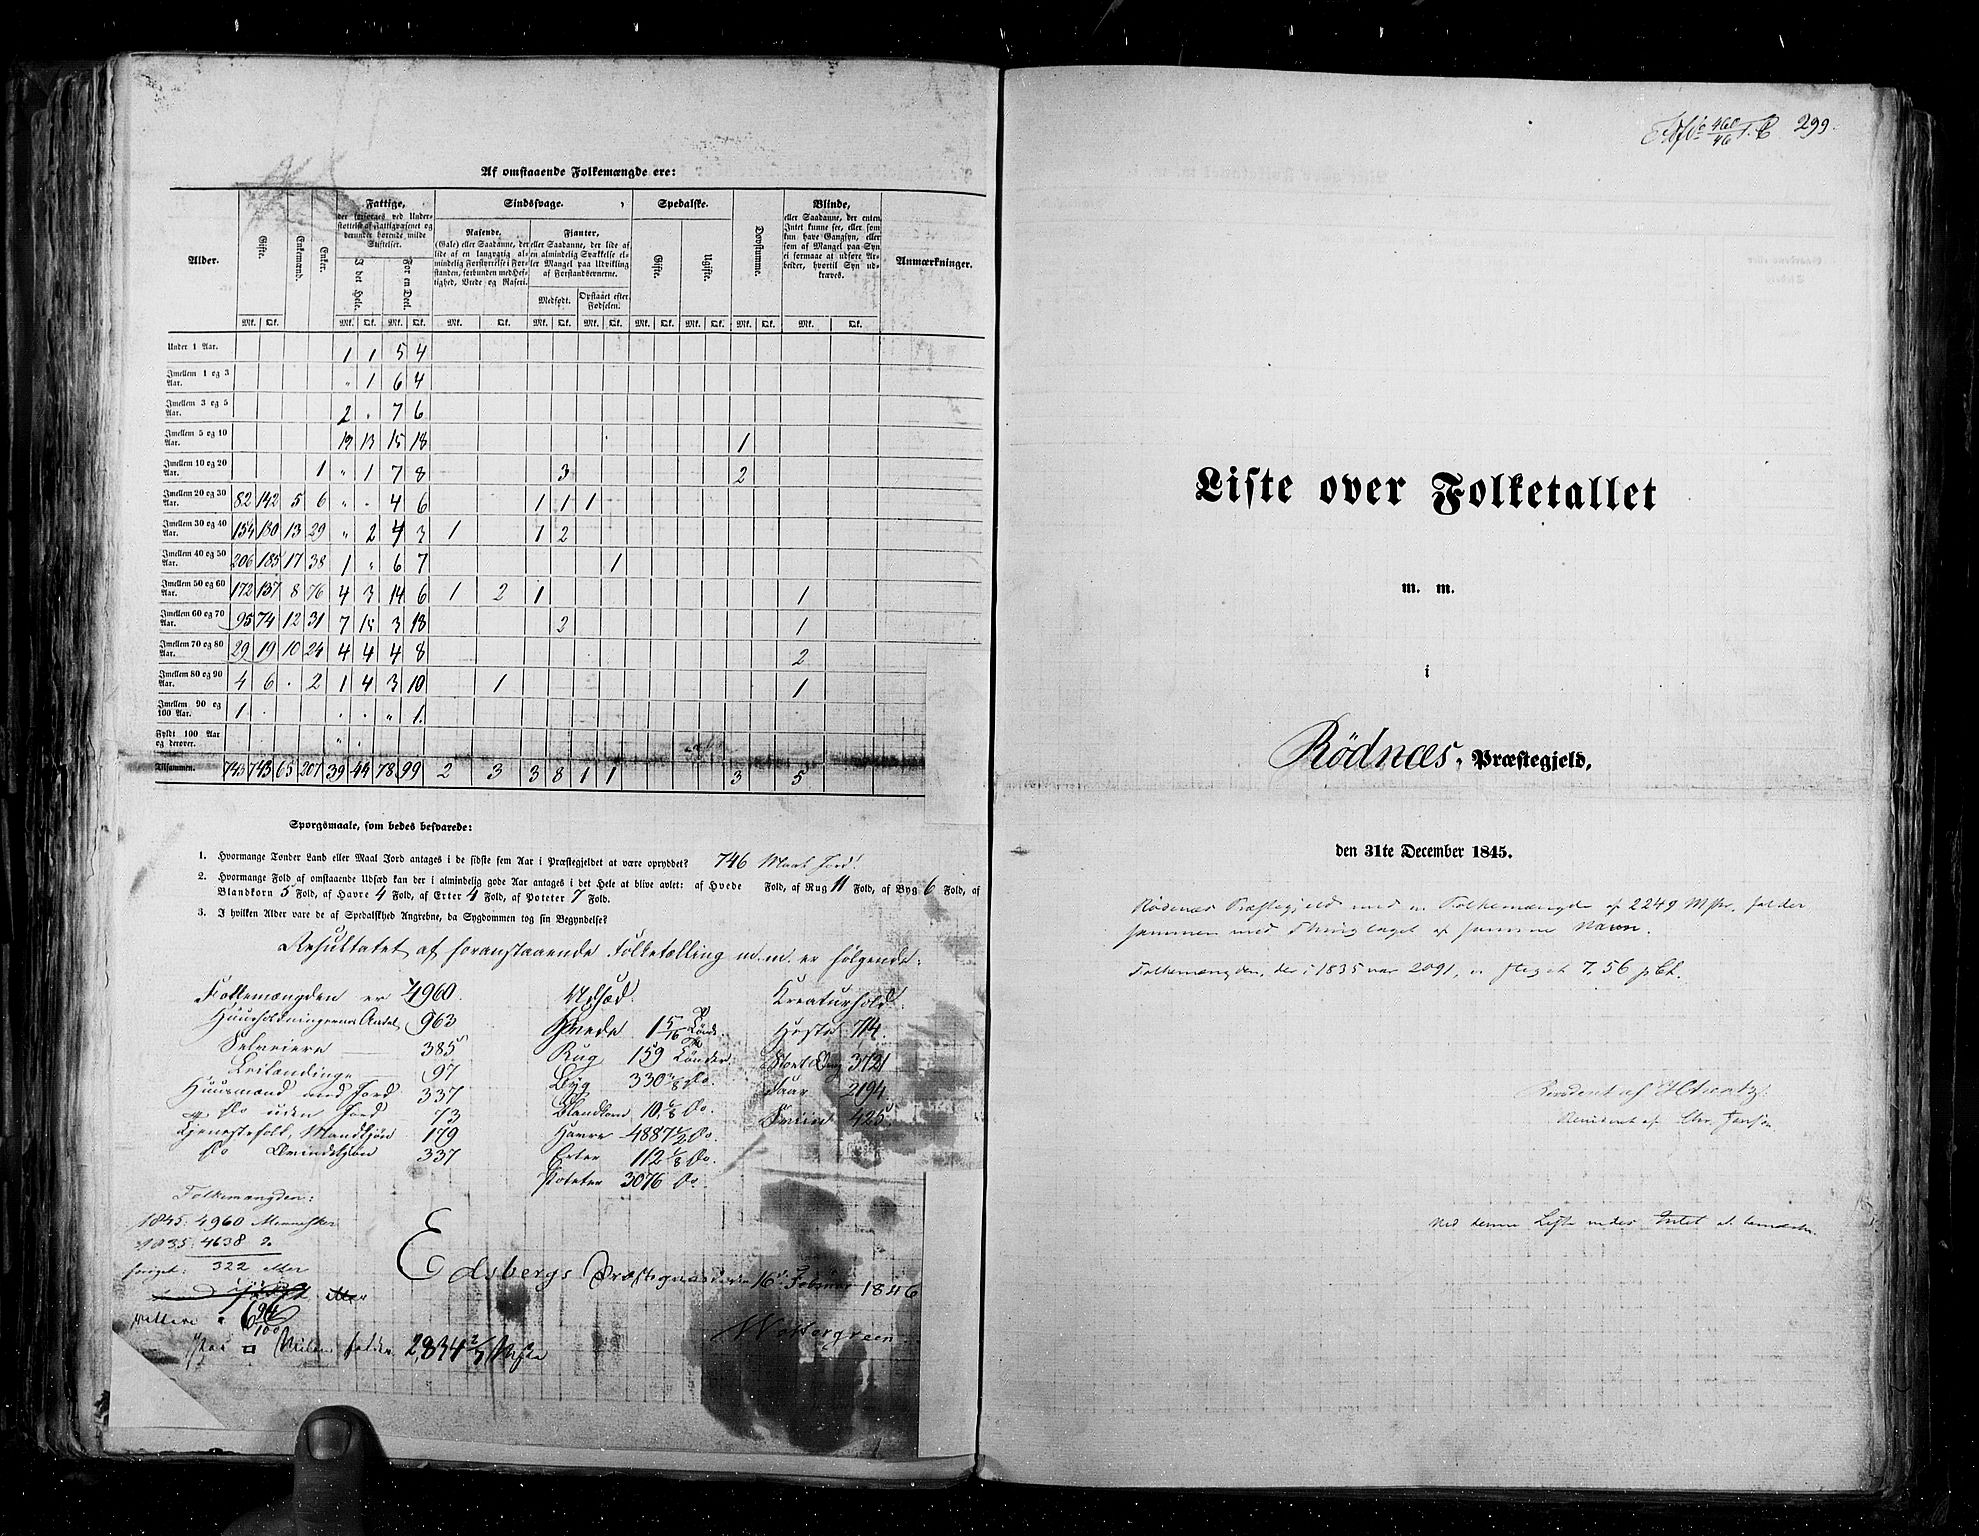 Af omstaaende Folkemængde ere:
Alder. Gifte. Enkemænd. Enker. Fattige, Sindssvage. Spedalske. Døvstumme. Blinde, Anmærkninger.
der forsørges ved Under-
støttelse af Fattigvæsenet og
derunder hørende milde
Stiftelser.
I det Hele. For en Deel.
Rasende.
(Gale) eller Saadanne, der
lide af en langvarig al-
mindelig Forstyrrelse i For-
standen, forbunden med Hef-
tighed, Vrede og Raseri.
Fianter,
eller Saadanne, der lide af
en almindelig Svækkelse el-
ler Mangel paa Udvikling
af Forstandsevnerne.
Medfødt. Opstaaet efter Fødselen.
Gifte. Ugifte.
eller Saadanne, der enten
Intet kunne see, eller som
kun have Gangsyn, eller
som af Mangel paa Syn
ei formaae at udføre Ar-
beider, hvortil Syn ud-
kræves.
Mk. Qk. Mk. Qk. Mk. Qk. Mk. Qk. Mk. Qk. Mk. Qk. Mk. Qk. Mk. Qk. Mk. Qk. Mk. Qk.
Under 1 Aar. 1 1 5 4
Imellem 1 og 3 Aar. " 1 6 4
Imellem 3 og 5 Aar. 2 " 7 6
Imellem 5 og 10 Aar. 19 13 15 18 1
Imellem 10 og 20 Aar. 1 " 1 7 8 3 2
Imellem 20 og 30 Aar. 82 142 5 6 " " 4 6 1 1 1
Imellem 30 og 40 Aar. 154 180 13 29 " 2 4 3 1 1 2
Imellem 40 og 50 Aar. 206 185 17 38 1 " 6 7 1
Imellem 50 og 60 Aar. 172 137 8 76 4 3 14 6 1 2 1 1
Imellem 60 og 70 Aar. 95 74 12 31 7 15 3 18 2 1
Imellem 70 og 80 Aar. 29 19 10 24 4 4 4 8 2
Imellem 80 og 90 Aar. 4 6 . 2 1 4 3 10 1 1
Imellem 90 og 100 Aar. 1 . . . " 1
Fyldt 100 Aar og derover. " .
Tilsammen. 743 743 65 207 39 44 78 99 2 3 3 8 1 1 3 5
Spørgsmaale, som bedes besvarede:
1. Hvormange Tønder Land eller Maal Jord antages i de sidste fem Aar i Præstegjeldet at være opryddet? 746 Maal Jord
2. Hvormange Fold af omstaaende Udsæd kan der i almindelig gode Aar antages i det Hele at blive avlet: af Hvede Fold, af Rug 11 Fold, af Byg 6 Fold, af
Blandkorn 5 Fold, af Havre 4 Fold, af Erter 4 Fold, af Poteter 7 Fold.
3. I hvilken Alder vare de af Spedalskhed Angrebne, da Sygdommen tog sin Begyndelse?
Resultatet af foranstaaende Folketælling m.m. er følgende:
Folkemængden er 4960.
Huusholdningernes Antal 963
Selveiere 385
Leilændinge 97
Huusmænd med Jord 337
Do uden Jord 73
Tjenestefolk, Mandkjøn 179
Do Qvindekjøn 337
Udsæd.
Hvede 1 5/16 Tønde
Rug 159 Tønder
Byg 330 /8 Do.
Blandkorn 10 6/8 Do.
Havre 4887 1/2 Do.
Erter 112 /8 Do.
Poteter 3076 Do.
Kreaturhold
Heste 714.
Stort Qvæg 3721
Faar 2194.
Sviin 425.
Folkemængden:
1845: 4960 Mennesker
1835: 4638 Do
forøget: 322 eller
6 94/100
Paa □ Milen falder 2,834 2/7 Msker
Edsbergs Præstegaard den 16de Februar 1846
Wettergreen
460/46 299.
Liste over Folketallet
m. m.
i
Rødnæs Præstegjeld,
den 31te December 1845.
Rødenæs Præstegjeld med en Folkemængde af 2249 Msker. falder
sammen med Thinglaget af samme Navn.
Folkemængden, der i 1835 var 2091, er steget 7.56 pCt.
Revideret af
Revideret af Chr. Jensen
Ved denne Liste vides Intet at bemærke